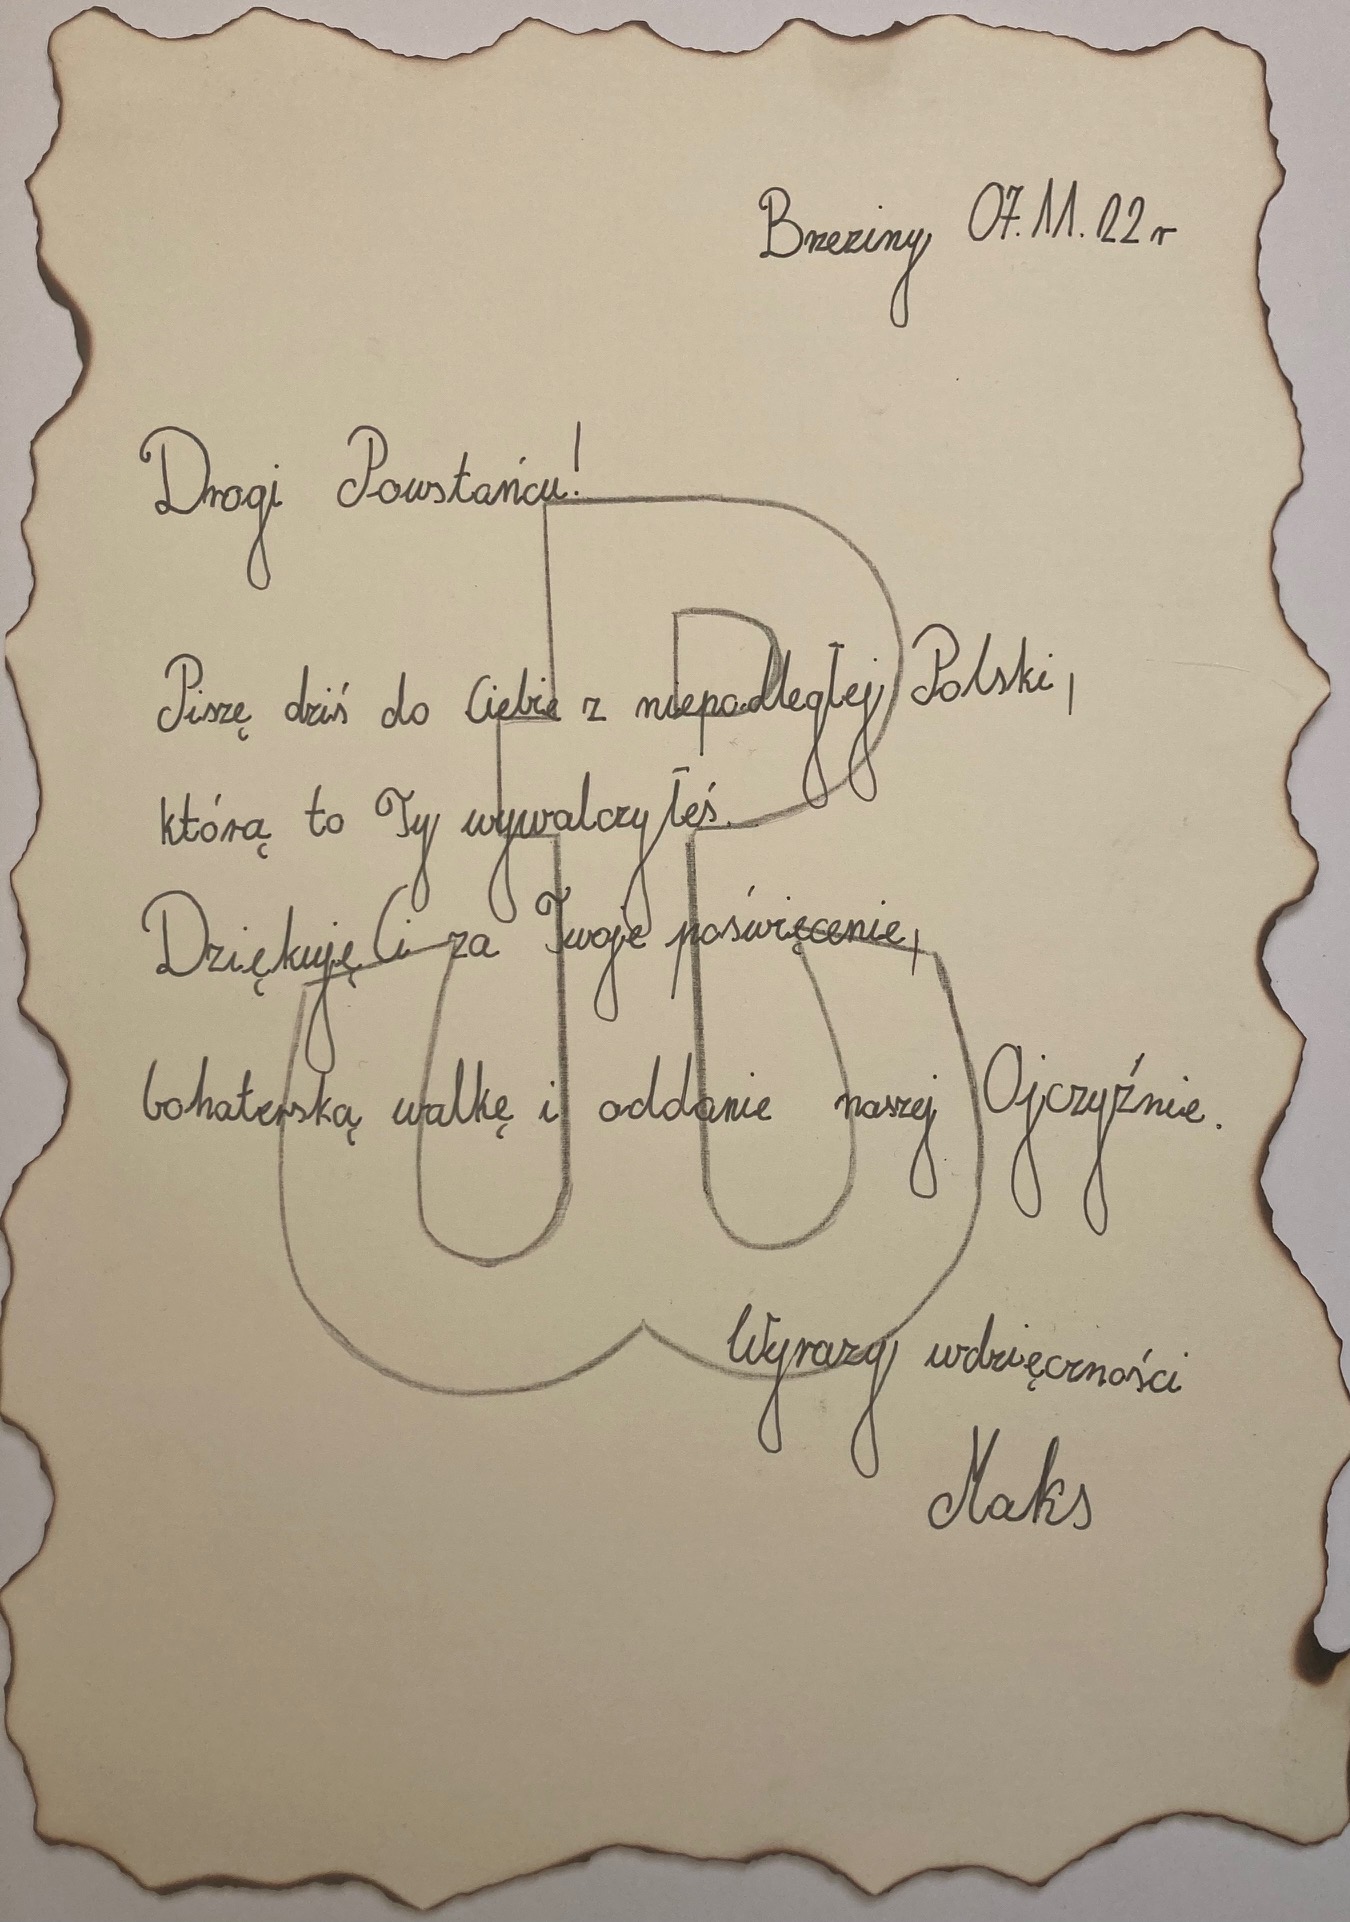 Brzeziny 07.11.22 r
Drogi Powstańcu!
Piszę dziś do Ciebie z niepodległej Polski,
którą to Ty wywalczyłeś.
Dziękuję Ci za Twoje poświęcenie,
bohaterską walkę i oddanie naszej Ojczyźnie.
Wyrazy wdzięczności
Maks